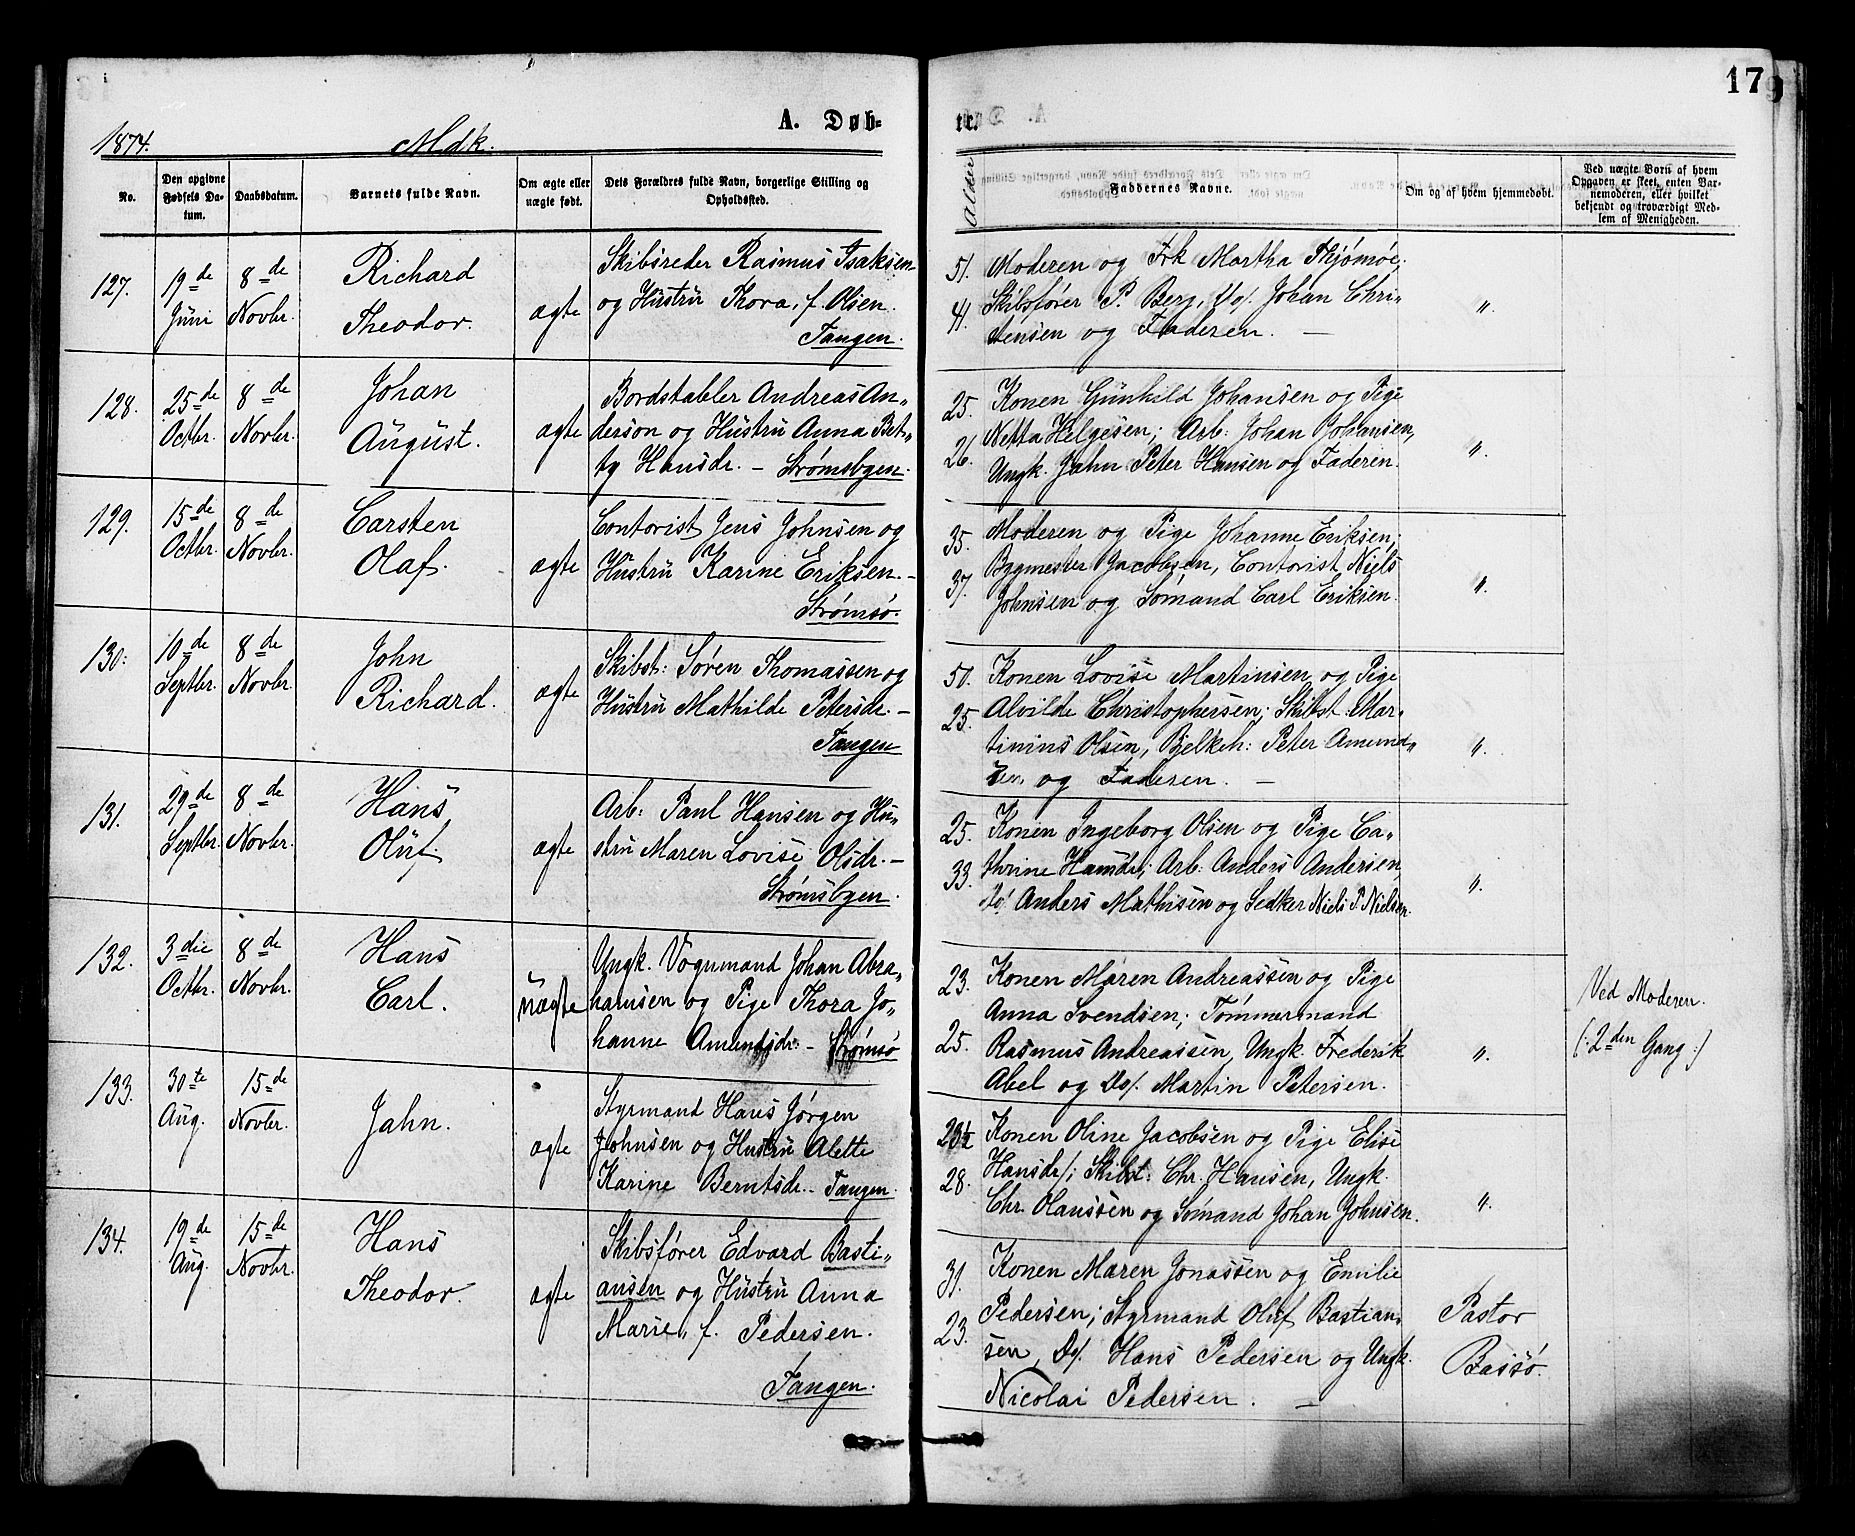 17
A. Døb-
te.
1874.
Mdk.
No.
Den opgivne Fødsels Datum.
Daabsdatum.
Barnets fulde Navn.
Om ægte eller uægte født.
Dets Forældres fulde Navn, borgerlige Stilling og Opholdssted.
Alder
Faddernes Navne.
Om og af hvem hjemmedøbt.
Ved uægte Børn af hvem
Opgaven er skeet, enten Bar-
nemoderen, eller hvilket
bekjendt og troværdigt Med-
lem af Menigheden.
127.
19de Juni
8de Novbr.
Richard
Theodor.
ægte
Skibsreder Rasmus Isaksen
og Hustru Thora, f. Olsen.
Tangen.
51.
41.
Moderen og Frk Martha Thjømøe;
Skibsfører P. Berg, Do/. Johan Chri-
stensen og Faderen. —
"
128.
25de Octbr.
8de Novbr.
Johan
August.
ægte
Bordstabler Andreas An-
derson og Hustru Anna Bet-
ty Hansdr. – Strømsbgen.
25.
26.
Konen Gunhild Johansen og Pige
Netta Helgesen; Arb: Johan Johansen,
Ungk. Jahn Peter Hansen og Faderen.
"
129.
15de Octbr.
8de Novbr.
Carsten
Olaf.
ægte
Contorist Jens Johnsen og
Hustru Karine Eriksen. –
Strømsø.
35.
37.
Moderen og Pige Johanne Eriksen;
Bygmester Jacobsen, Contorist Niels
Johnsen og Sømand Carl Eriksen.
"
130.
10de Septbr.
8de Novbr.
John
Richard.
ægte
Skibst: Søren Thomassen og
Hustru Mathilde Petersdr. –
Tangen
50.
25.
Konen Lovise Martinsen og Pige
Alvilde Christophersen; Skibst: Mar-
tinius Olsen, Bjelkeh: Peter Amund-
sen og Faderen. —
"
131.
29de Septbr.
8de Novbr.
Hans
Oluf.
ægte
Arb: Paul Hansen og Hu-
stru Maren Lovise Olsdr. –
Strømsbgen.
25.
33.
Konen Ingeborg Olsen og Pige Ca-
thrine Hansdr; Arb: Anders Andersen,
Anders Mathisen og Niels P. Nielsen.
"
132.
3die Octbr.
8de Novbr.
Hans
Carl.
uægte
Ungk. Vognmand Johan Abra-
hamsen og Pige Thora Jo-
hanne Amundsdr. – Strømsø
23.
25.
Konen Maren Andreassen og Pige
Anna Svendsen; Tømmermand
Rasmus Andreassen, Ungk. Frederik
Abel og Do/. Martin Petersen.
"
Ved Moderen.
(: 2den Gang :)
133.
30te Aug.
15de Novbr.
Jahn.
ægte
Styrmand Hans Jørgen
Johnsen og Hustru Alette
Karine Berntsdr. – Tangen.
23½
28.
Konen Oline Jacobsen og Pige Elise
Hansdr/; Skibst: Chr. Hansen, Ungk.
Chr. Olaussen og Sømand Johan Johnsen.
"
134.
19de Aug.
15de Novbr.
Hans
Theodor.
ægte
Skibsfører Edvard Basti-
ansen og Hustru Anna
Marie, f. Pedersen.
Tangen.
31.
23.
Konen Maren Jonassen og Emilie
Pedersen; Styrmand Oluf Bastian-
sen, Do/. Hans Pedersen og Ungk.
Nicolai Pedersen. —
Pastor
Bassø.